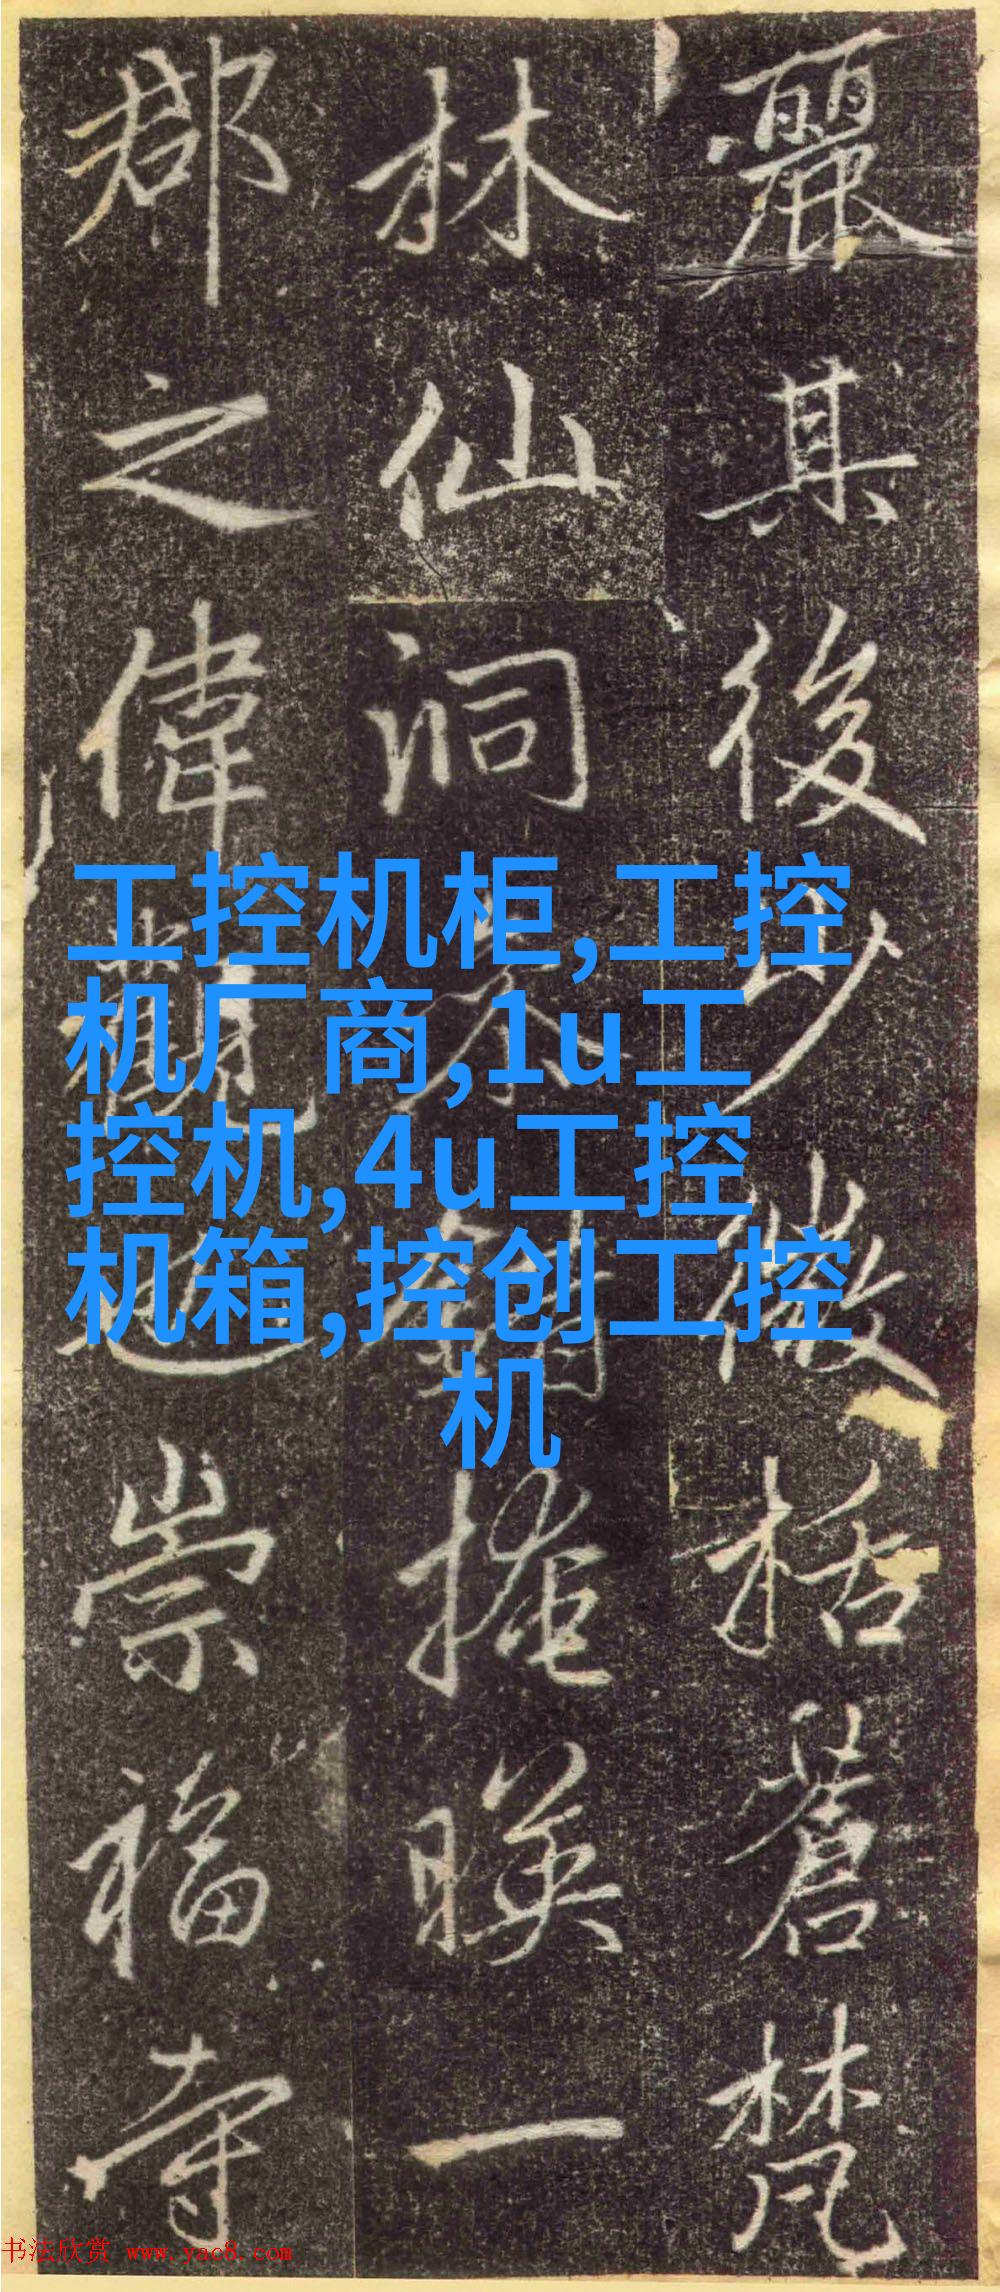 麗其後少微栝蒼梵
林仙洞掩暎一
郡之偉觀也崇福寺
工控机柜,工控
机厂商,1u工
控机,4u工控
机箱,控创工控
机
书法欣赏 www.yac8.com